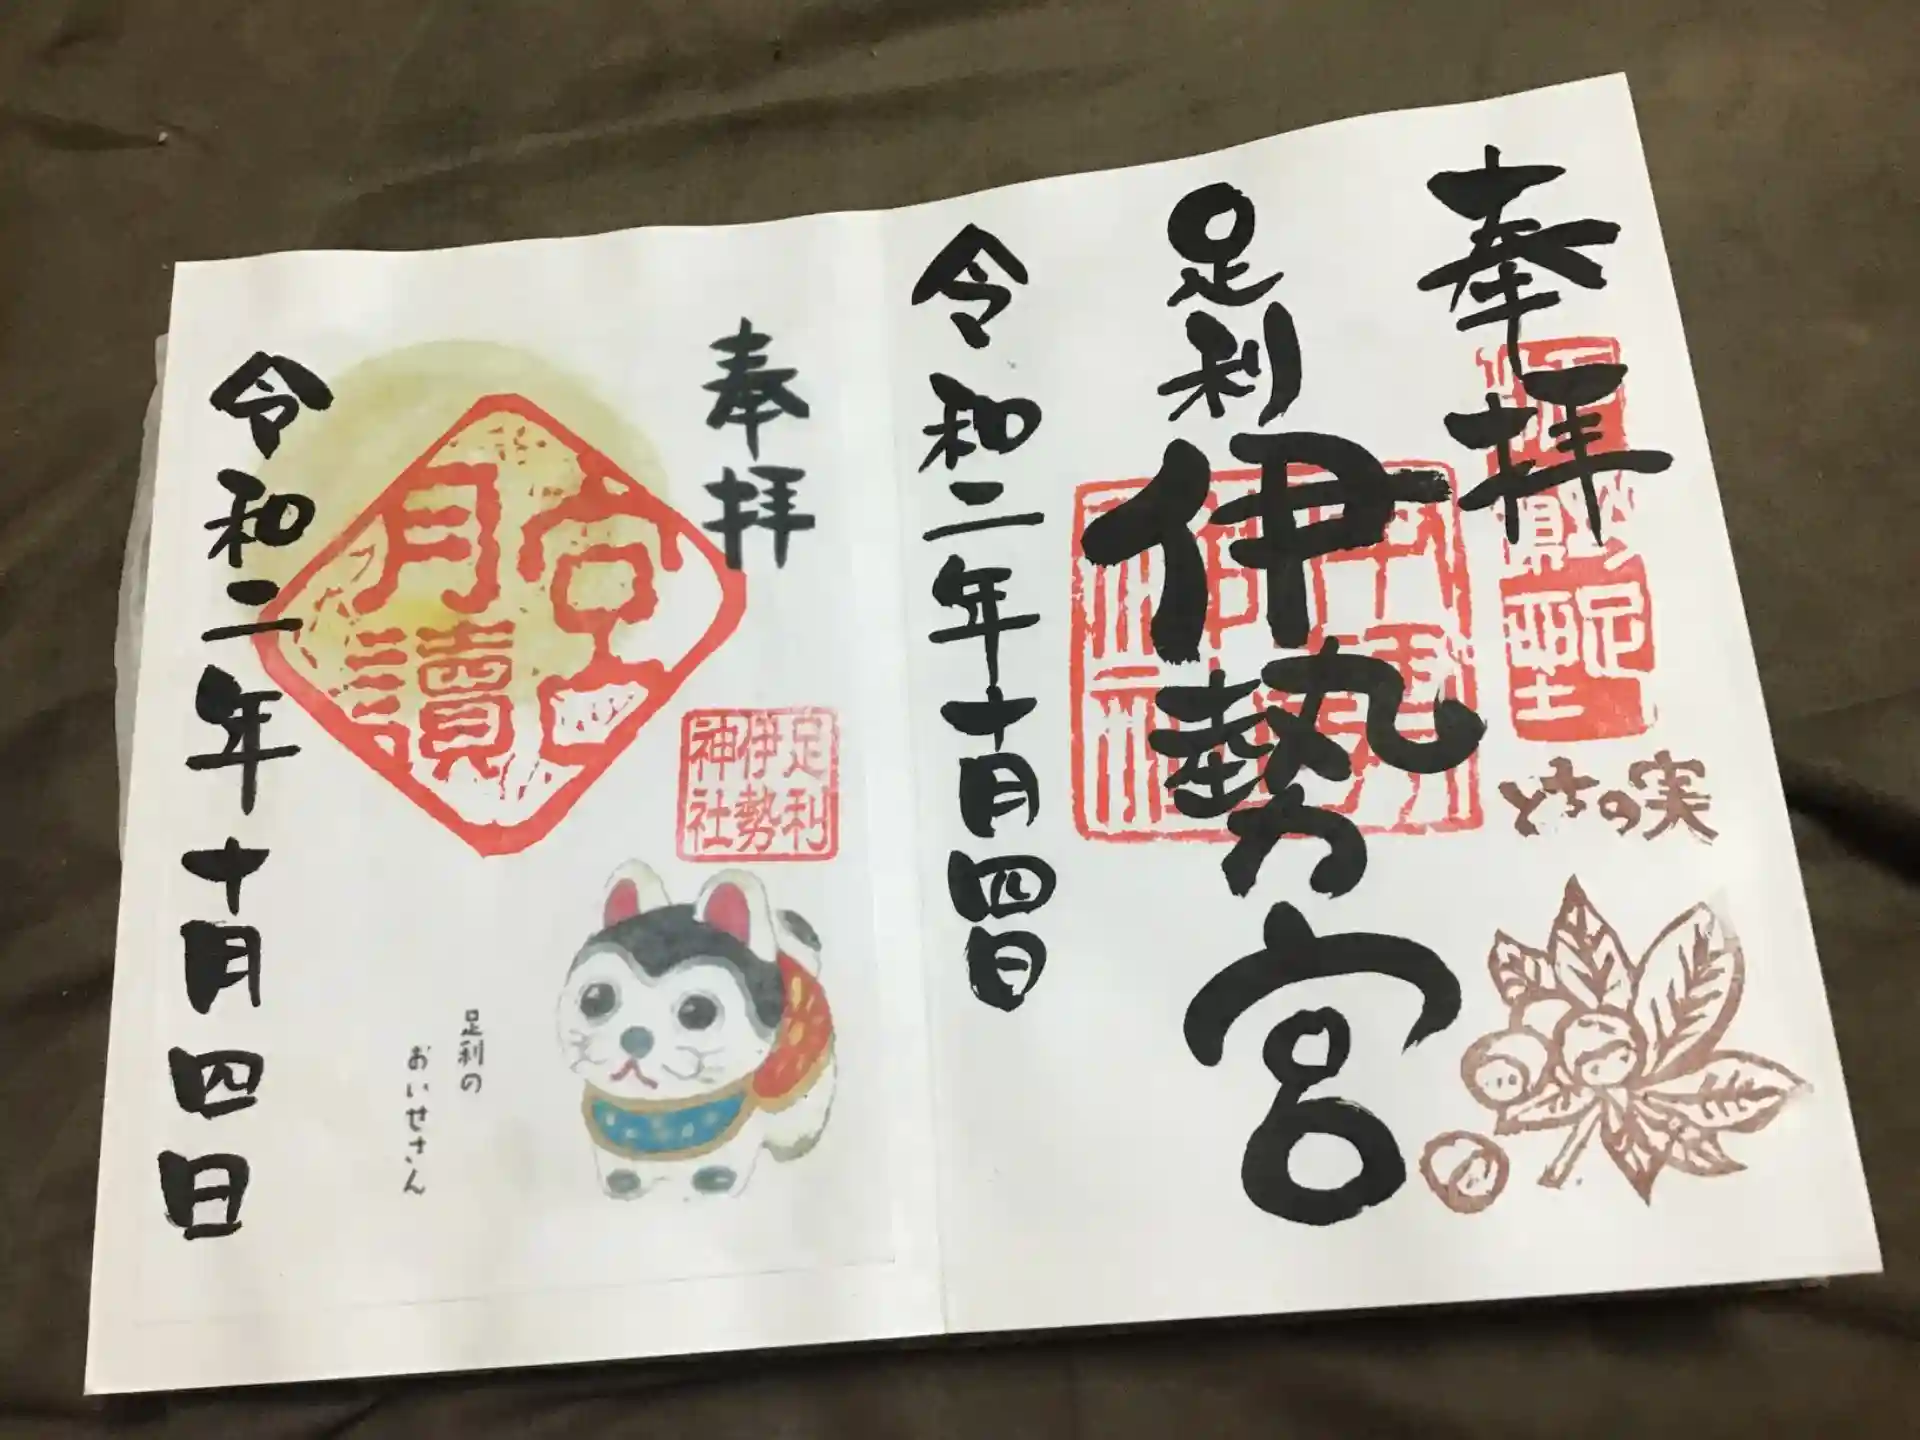 奉拝
足利
伊勢宮
令和二年十月四日
とちの実
奉拝
月讀宮
足利伊勢神社
足利の
おいせさん
令和二年十月四日